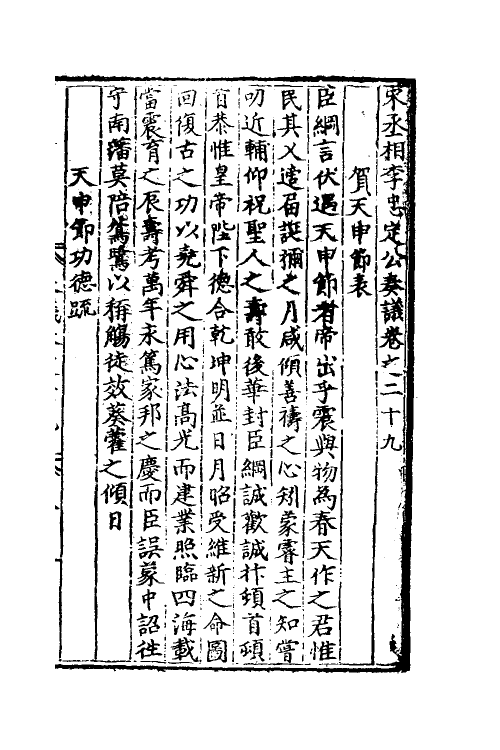 宋丞相李忠定公奏議卷之二十九
賀天申節表
臣綱言伏遇天申節者帝出乎震與物為春天作之君惟
民其乂逺届誕彌之月咸傾善禱之心矧蒙睿主之知嘗
叨近輔仰祝聖人之壽敢後華封臣綱誠歡誠抃頓首頓
首恭惟皇帝陛下德合乾坤明並日月昭受維新之命圖
回復古之功以堯舜之用心法高光而建業照臨四海載
當震育之辰壽考萬年永篤家邦之慶而臣誤蒙中詔往
守南藩莫陪鴛鷺以稱觴徒效葵藿之傾日
天申節功德疏